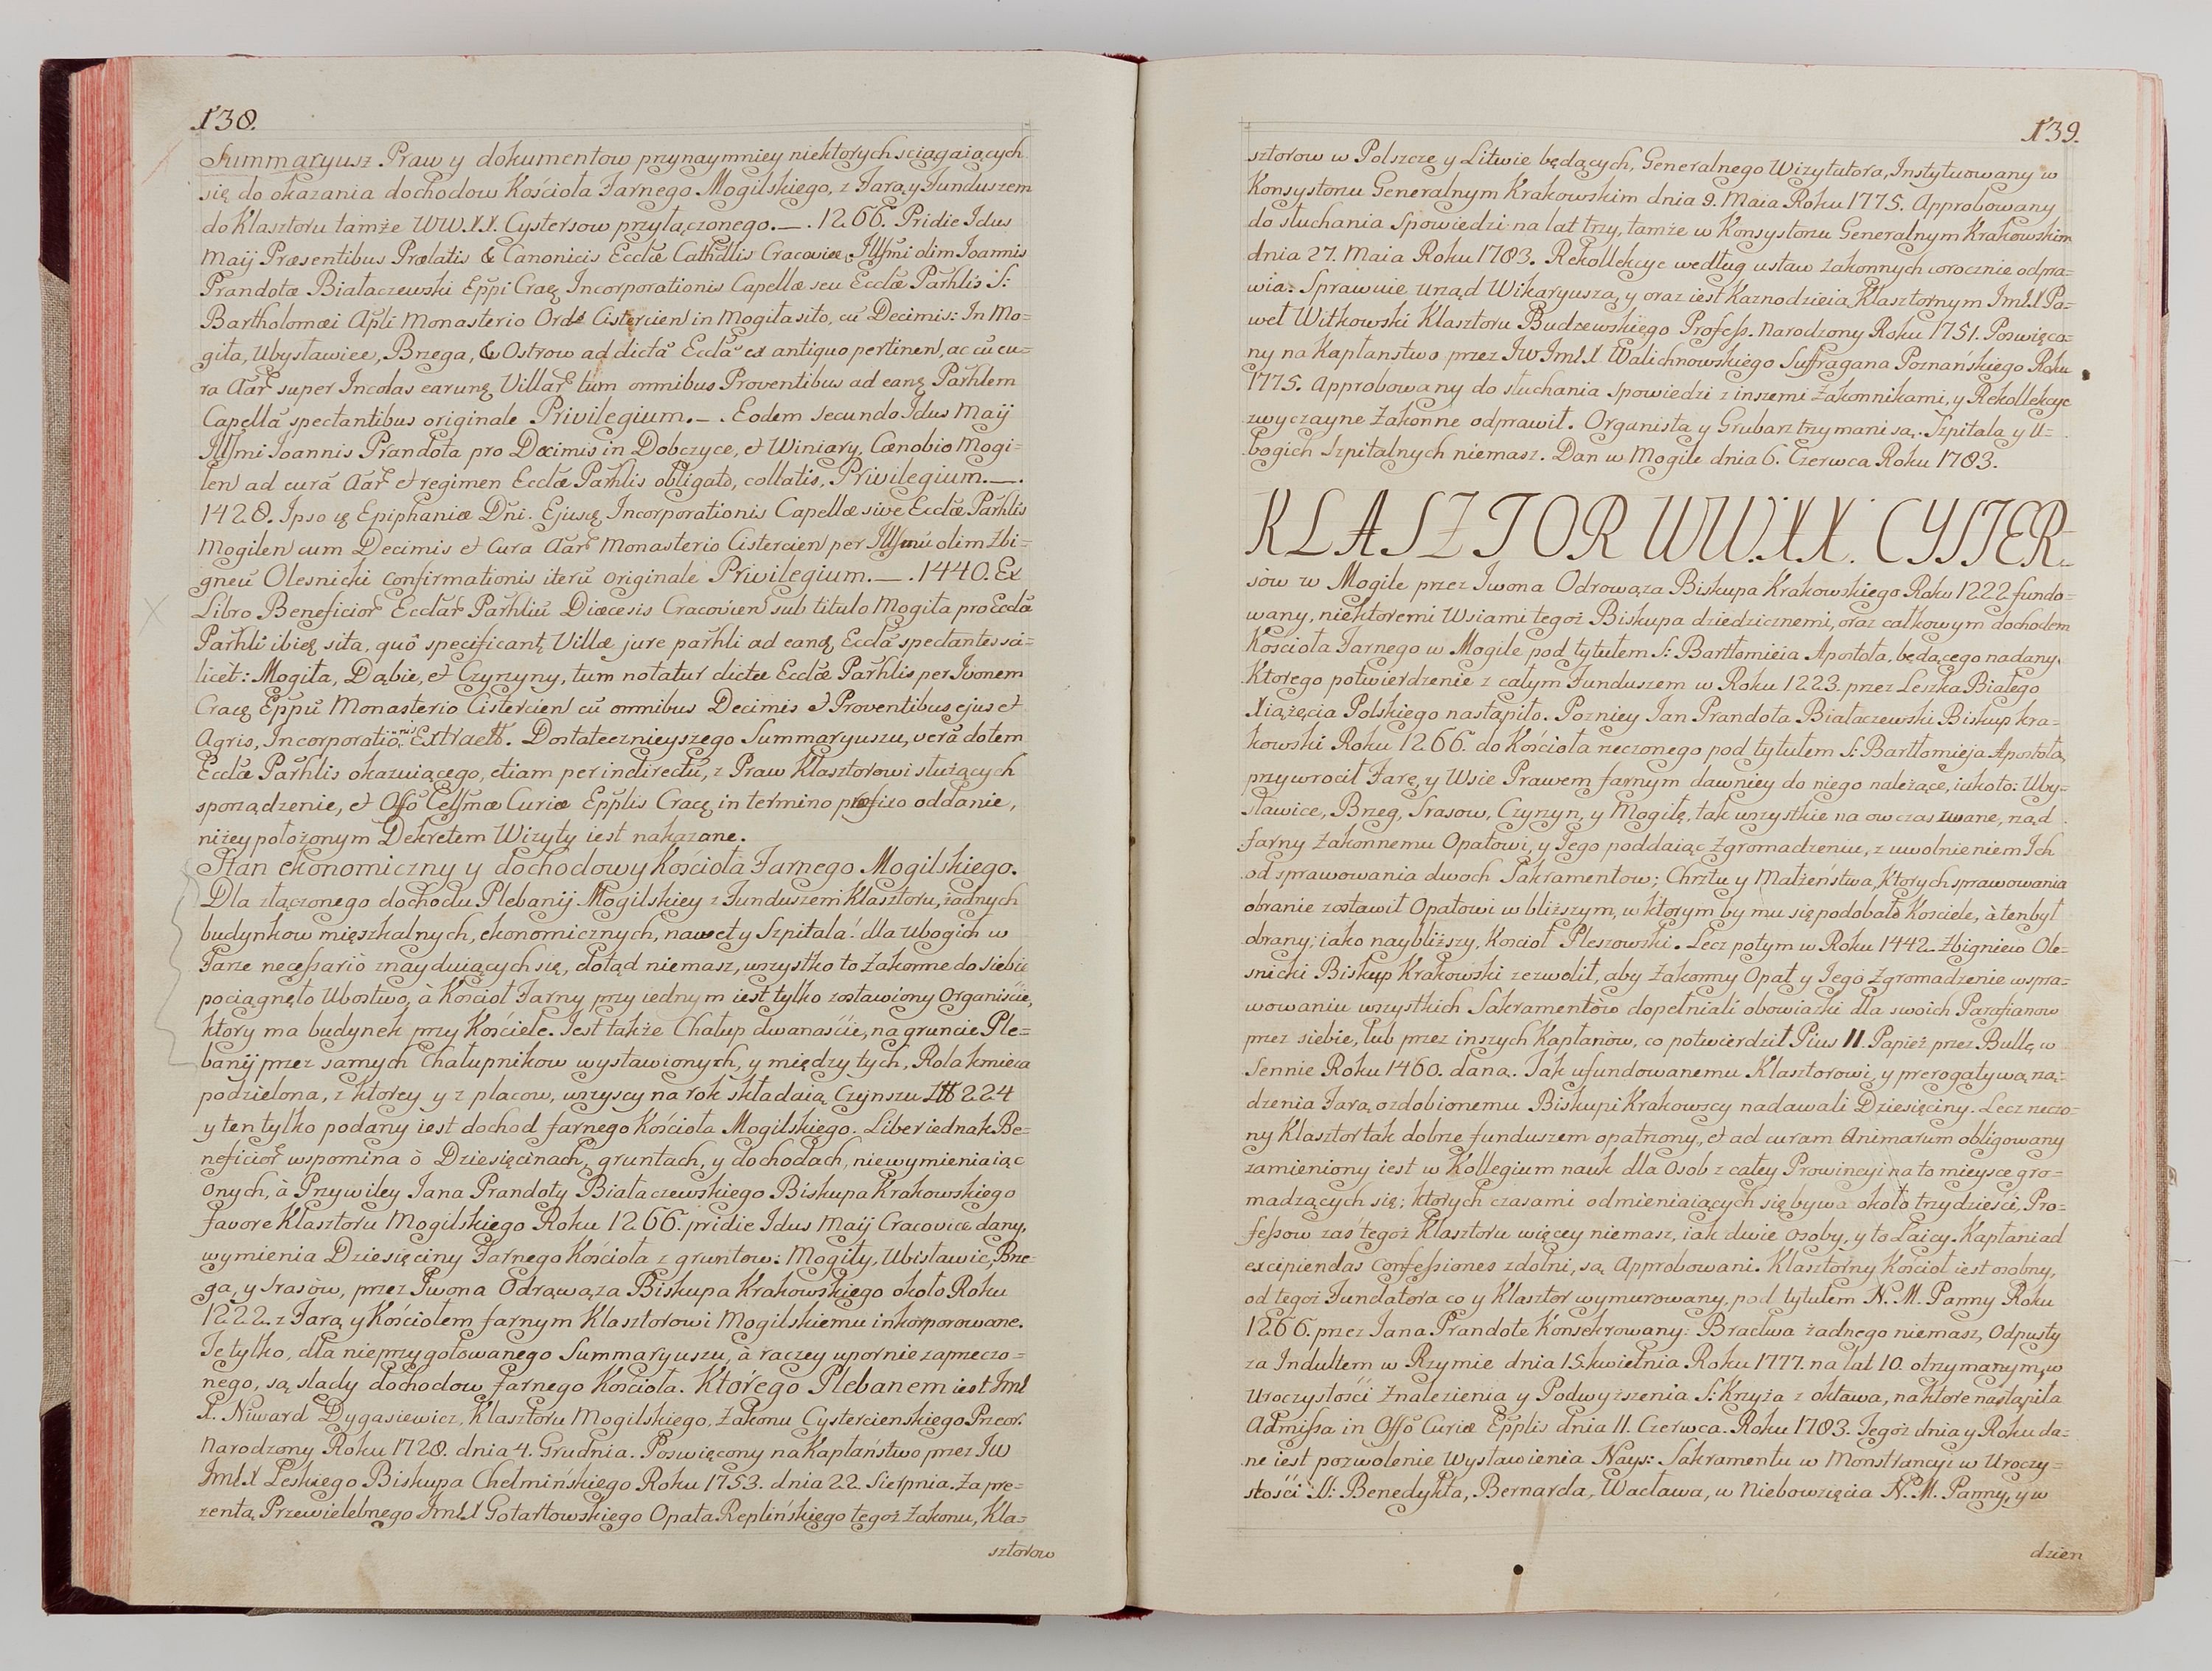 138.
Summaryusz Praw y dokumentow przynaymniey niektorych sciągaiących
się do okazania dochodow Kościoła Farnego Mogilskiego, z Farą y Funduszem
do Klasztoru tamże WW.XX. Cystersow przyłączonego. — . 1266. Pridie Idus
Maij Præsentibus Prælatis & Canonicis Ecclæ Cathdlis Cracoviæ Illsmi olim Joannis
Prandotæ Białaczewski Eppi Crac̨ Incorporationis Capellæ seu Ecclæ Parhlis S:
Bartholomæi Apli Monasterio Ord: Cistercien in Mogiła sito, cū Decimis: In Mo=
giła, Ubysławice, Brzega, & Ostrow ad dictā Ecclā ex antiquo pertinen, ac cū cu=
ra Aar super Incolas earunq̨ Villar tùm omnibus Proventibus ad eanq̨ Parhlem
Capellā spectantibus originale Privilegium. — . Eodem secundo Idus Maij
Illsmi Joannis Prandota pro Decimis in Dobczyce, et Winiary, Cœnobio Mogi=
len ad curā Aar et regimen Ecclæ Parhlis obligato, collatis, Privilegium. — .
1428. Ipso Epiphaniæ Dni. Ejusq̨ Incorporationis Capellæ sive Ecclæ Parhlis
Mogilen cum Decimis et Cura Aar Monasterio Cistercien per Illsmū olim Zbi=
gneū Olesnicki confirmationis iterū originale Privilegium. — . 1440. Ex
Libro Beneficior Ecclar Parhliū Diæcesis Cracovien sub titulo Mogiła pro Ecclā
Parhli ibiq̨ sita, quō specificant Villæ jure parhli ad eanq̨ Ecclā spectantes sci=
licèt: Mogiła, Dąbie, et Czyrzyny, tum notatur dictæ Ecclæ Parhlis per Ivonem
Crac̨ Eppū Monasterio Cistercien cū omnibus Decimis et Proventibus ejus et
Agris, Incorporatiōnis Extractt. Dostatecznieyszego Summaryuszu, verā dotem
Ecclæ Parhlis okazuiącego, etiam per indirectū, z Praw Klasztorowi służących
sporządzenie, et Offō Celsmæ Curiæ Epplis Crac̨ in termino præfixo oddanie,
niżey położonym Dekretem Wizyty iest nakazane.
Stan ekonomiczny y dochodowy Kościoła Farnego Mogilskiego.
Dla złączonego dochodu Plebanij Mogilskiey z Funduszem Klasztoru, żadnych
budynkow mięszkalnych, ekonomicznych, nawet y Szpitala dla ubogich w
Farze necessariò znayduiących się, dotąd niemasz, wszystko to Zakonne do siebie
pociągnęło Ubostwo, à Kościoł Farny przy iednym iest tylko zostawiony Organiście,
ktory ma budynek przy Kościele. Jest także Chałup dwanaście, na gruncie Ple=
banij przez samych Chałupnikow wystawionych, y między tych, Rola kmieca
podzielona, z ktorey y z placow, wszyscy na rok składaią Czynszu Ztt 224
y ten tylko podany iest dochod farnego Kościoła Mogilskiego. Liber iednak Be=
neficior wspomina ò Dziesięcinach, gruntach, y dochodach, niewymieniaiąc
onych, à Przywiley Jana Prandoty Białaczewskiego Biskupa Krakowskiego
favore Klasztoru Mogilskiego Roku 1266. pridie Idus Maij Cracoviæ dany,
wymienia Dziesięciny Farnego Kościoła z gruntow: Mogiły, Ubisławic, Brze=
ga, y Srasòw, przez Jwona Odrąwąża Biskupa Krakowskiego około Roku
1222. z Farą y Kościołem farnym Klasztorowi Mogilskiemu inkorporowane.
Te tylko, dla nieprzygotowanego Summaryuszu, à raczey upornie zaprzeczo=
nego, są slady dochodow farnego Kościoła. Ktorego Plebanem iest Jmċ
X. Niward Dygasiewicz, Klasztoru Mogilskiego, Zakonu Cystercienskiego Przeor.
Narodzony Roku 1728. dnia 4. Grudnia. Poswięcony na Kapłaństwo przez JW
JmċX Leskiego Biskupa Chełmińskiego Roku 1753. dnia 22. Sierpnia. Za pre=
zentą Przewielebnego JmċX Gotartowskiego Opata Replińskiego tegoż Zakonu, Kla=
sztorow
139.
sztorow w Polszcze y Litwie będących, Generalnego Wizytatora, Instytuowany w
Konsystorzu Generalnym Krakowskim dnia 9. Maia Roku 1775. Approbowany
do słuchania Spowiedzi na lat trzy, tamże w Konsystorzu Generalnym Krakowskim
dnia 27. Maia Roku 1783. Rekollekcye według ustaw zakonnych corocznie odpra=
wia. Sprawuie urząd Wikaryusza, y oraz iest Kaznodzieią Klasztornym JmċX Pa=
weł Witkowski Klasztoru Budzewskiego Profess. Narodzony Roku 1751. Poswięco=
ny na Kapłanstwo przez JW JmċX Walichnowskiego Suffragana Poznańskiego Roku
1775. Approbowany do słuchania Spowiedzi z inszemi Zakonnikami, y Rekollekcye
zwyczayne Zakonne odprawił. Organista y Grubarz trzymani są. Szpitala y U=
bogich Szpitalnych niemasz. Dan w Mogile dnia 6. Czerwca Roku 1783.
KLASZTOR WW.XX. CYSTER=
sòw w Mogile przez Jwona Odrowąza Biskupa Krakowskiego Roku 1222 fundo=
wany, niektoremi Wsiami tegoż Biskupa dziedzicznemi, oraz całkowym dochodem
Kościoła Farnego w Mogile pod tytułem S: Bartłomieia Apostoła, będącego nadany.
Ktorego potwierdzenie z całym Funduszem w Roku 1223. przez Leszka Białego
Xiążęcia Polskiego nastąpiło. Pozniey Jan Prandota Białaczewski Biskup kra=
kowski Roku 1266. do Kościoła rzeczonego pod tytułem S: Bartłomieja Apostoła,
przywrocił Farę, y Wsie Prawem farnym dawniey do niego należące, iakoto: Uby=
sławice, Brzeg, Srasow, Czyrzyn, y Mogiłę, tak wszystkie na ow czas zwane, rząd
Farny Zakonnemu Opatowi, y Jego poddaiąc Zgromadzeniu, z uwolnieniem Jch
od sprawowania dwoch Sakramentow; Chrztu y Małżeństwa, Ktorych sprawowania
obranie zostawił Opatowi w bliższym, w ktorym by mu się podobało Kosciele, à ten był
obrany; iako naybliższy, Kościoł Pleszowski. Lecz potym w Roku 1442. Zbigniew Ole=
snicki Biskup Krakowski zezwolił, aby Zakonny Opat y Jego Zgromadzenie w spra=
wowaniu wszystkich Sakramentòw dopełniali obowiązki dla swoich Parafianow
przez siebie, lub przez inszych Kapłanòw, co potwierdził Pius II. Papież przez Bullę w
Sennie Roku 1460. daną. Tak ufundowanemu Klasztorowi, y prerogatywą rzą=
dzenia Farą ozdobionemu Biskupi Krakowscy nadawali Dziesięciny. Lecz rzeczo=
ny Klasztor tak dobrze funduszem opatrzony, et ad curam Animarum obligowany
zamieniony iest w Kollegium nauk dla Osob z całey Prowincyi na to mieysce gro=
madzących się; ktorych czasami odmieniaiących się bywa około trzydzieści, Pro=
fessow zaś tegoż Klasztoru więcey niemasz, iak dwie osoby, y to Laicy. Kapłani ad
excipiendas Confessiones zdolni, są Approbowani. Klasztorny Kościoł iest osobny,
od tegoż Fundatora co y Klasztor wymurowany, pod tytułem N. M. Panny Roku
1266. przez Jana Prandotę Konsekrowany: Bractwa żadnego niemasz, Odpusty
za Indultem w Rzymie dnia 15. kwietnia Roku 1777. na lat 10. otrzymanym, w
Uroczystości Znalezienia y Podwyższenia S: Krzyża z oktawą, na ktore nastąpiła
Admissa in Offō Curiæ Epplis dnia 11. Czerwca Roku 1783. Tegoż dnia y Roku da=
ne iest pozwolenie Wystawienia Nayś: Sakramentu w Monstrancyi w Uroczy=
stości SS: Benedykta, Bernarda, Wacława, w Niebowzięcia N. M. Panny, y w
dzien